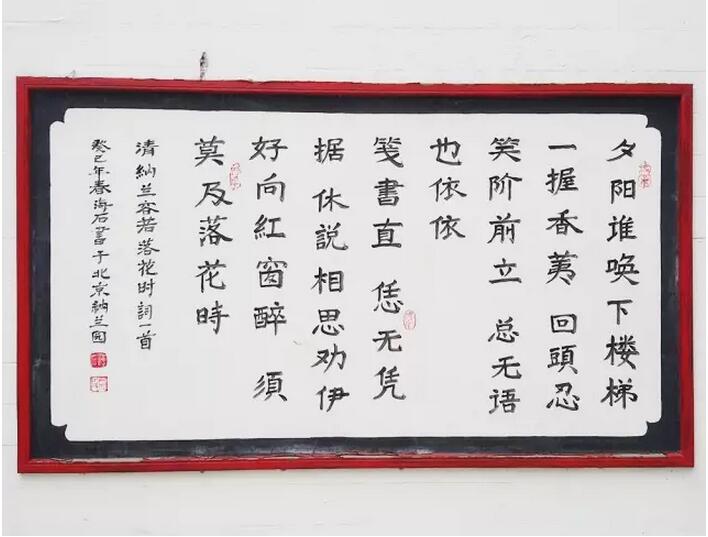 夕阳谁唤下楼梯
一握香荑 回頭忍
笑阶前立 总无语
也依依
笺书直 恁无凭
据 休説相思劝伊
好向紅窗醉 須
莫及落花時
清納兰容若落花时詞一首
癸巳年春海石書于北京納兰园